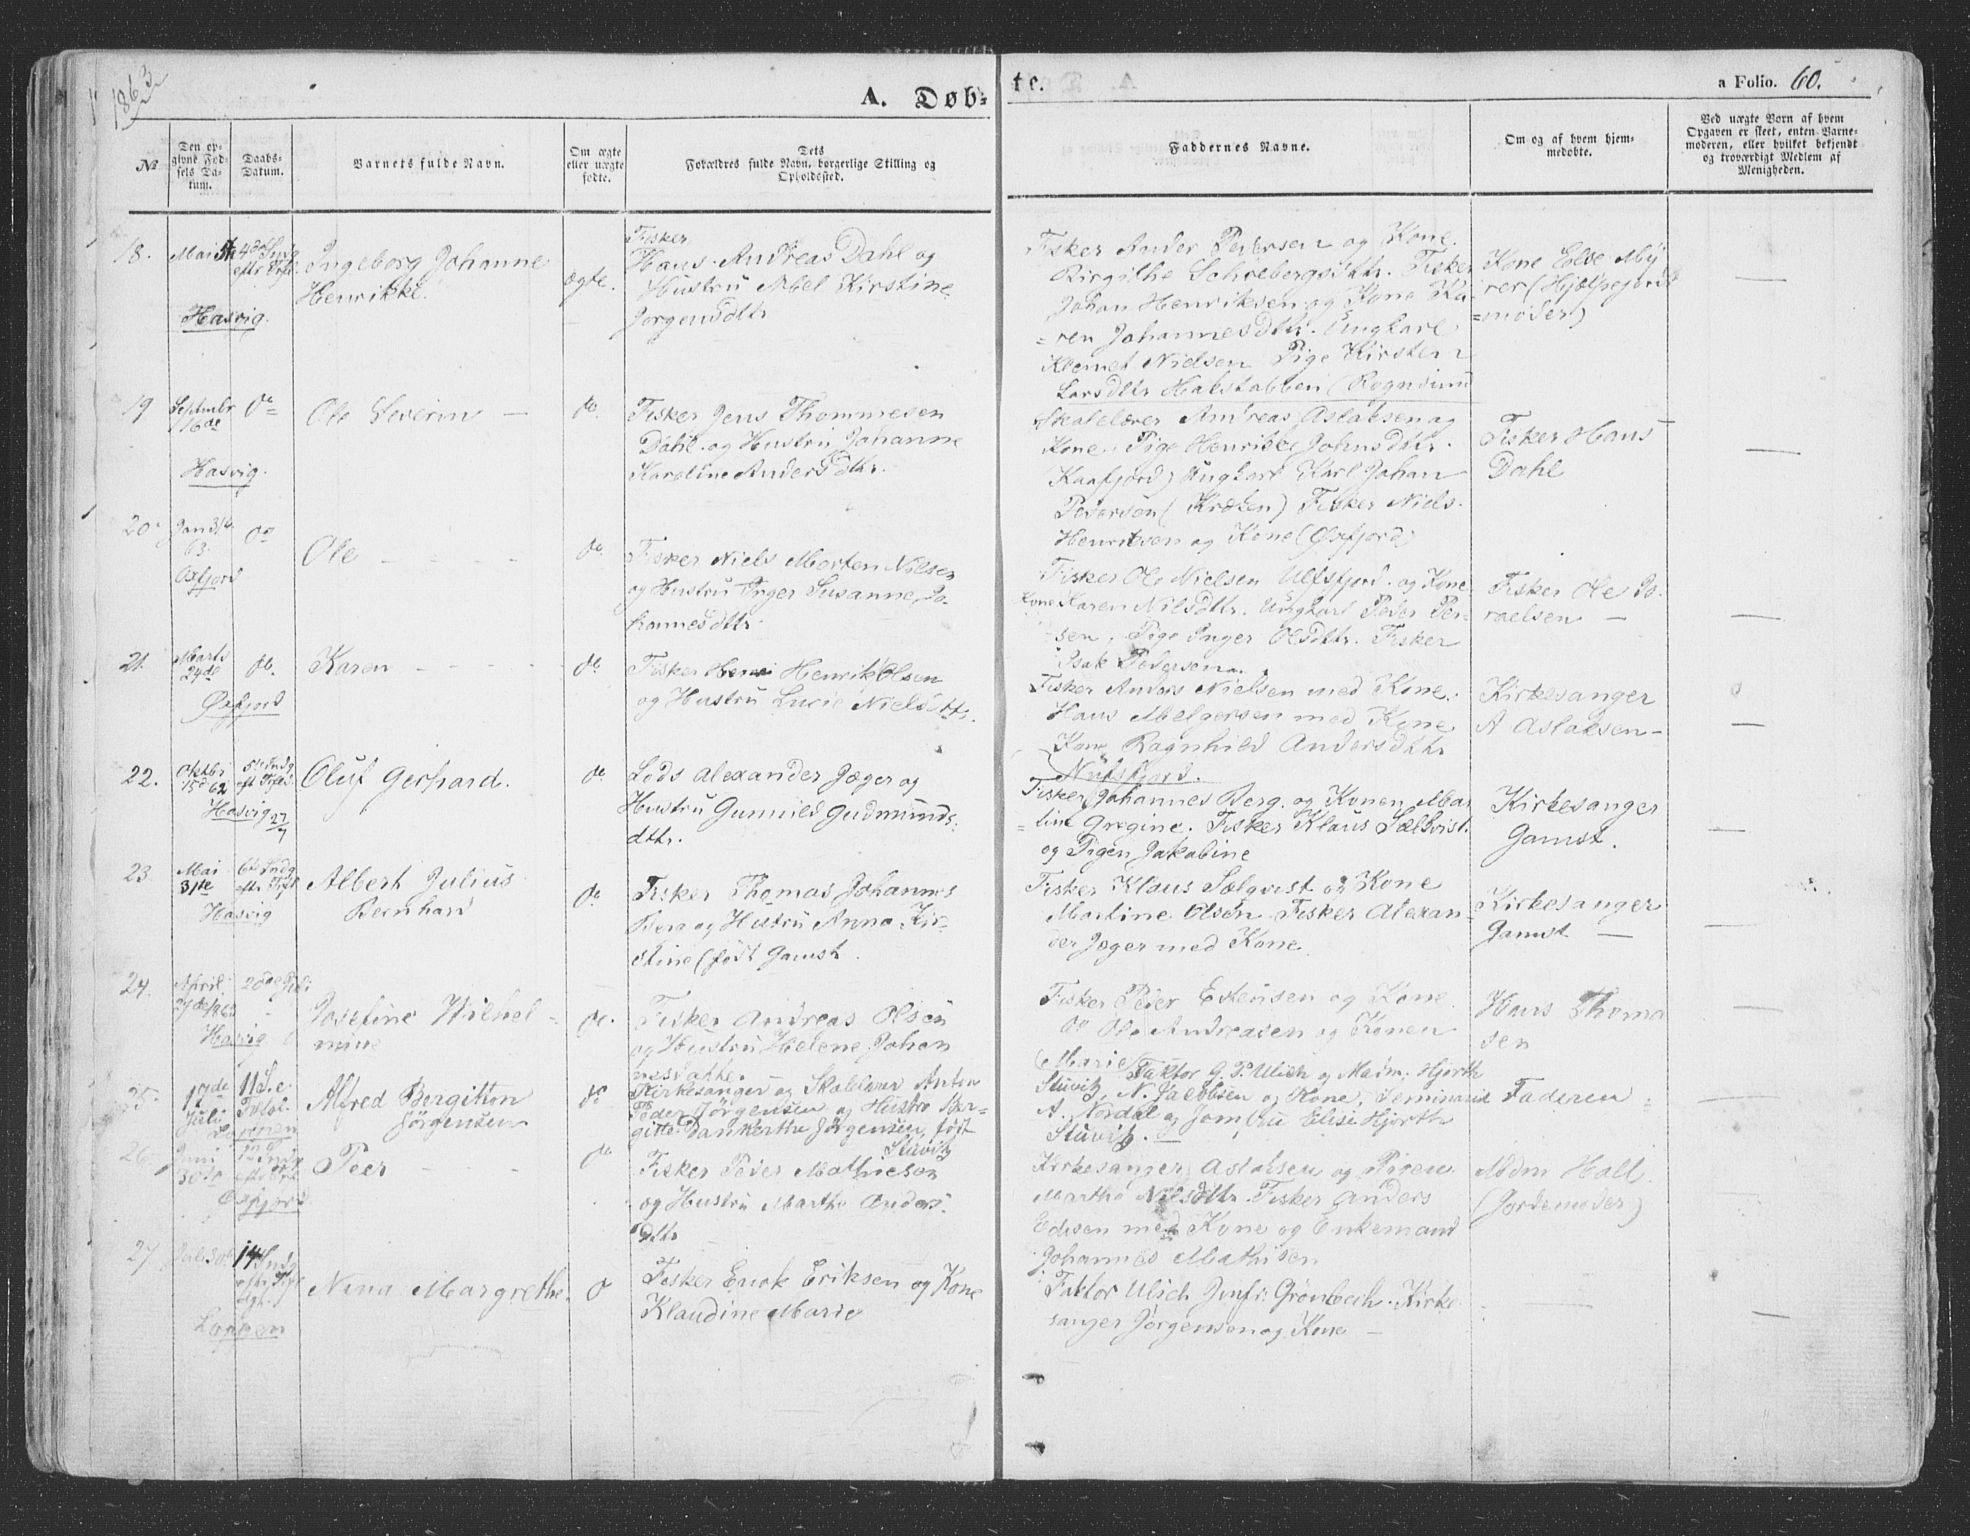 1863
A. Døb-
te.
a Folio. 60.
№
Den op-
givne Fød-
sels Da-
tum.
Daabs-
Datum.
Barnets fulde Navn.
Om ægte
eller uægte
fødte.
Dets
Forældres fulde Navn, borgerlige Stilling og
Opholdssted.
Faddernes Navne.
Om og af hvem hjem-
medøbte.
Ved uægte Børn af hvem
Opgaven er skeet, enten Barne-
moderen, eller hvilket bekjendt
og troværdigt Medlem af
Menigheden.
18.
Mai
4de Sndg
eftr Trft
Hasvig.
Ingeborg Johanne
Henrikke.
ægte.
Fisker
Hans Andreas Dahl og
Hustru Abel Kirstine
Jørgensdttr
Fisker Ander Pedersen og Kone
Birgithe Schrebergsdttr. Fisker
Johan Henriksen og Kone Ka-
=ren Johannesdttr. Ungkarl
Klemet Nielsen Pige Kirsten
Larsdttr Halstabben (Rognsund
Kone Else My
rer (Hjælpejord
=moder)
—
19
Septmbr
16de
do
Hasvig.
Ole Severin —
do
Fisker Jens Thommesen
Dahl og Hustru Johanne
Karoline Andersdttr.
Skolelærer Andreas Aslaksen og
Kone. Pige Henrikke Johnsdttr.
Kaafjord) Ungkarl Karl Johan
Pedersen (Kræken) Fisker Niels
Henriksen og Kone (Øxfjord)
Fisker Hans
Dahl
—
20
Jan 31te
63.
Oxfjord
do
Ole - - - -
do
Fisker Niels Morten Nilsen
og Hustru Inger Susanne Jo-
hannesdttr
Fisker Ole Nielsen Ulfsfjord og Kone
Kone Karen Nilsdttr. Ungkarl Peder Per-
sen. Pige Inger Olsdttr. Fisker
Isak Pedersen.
Fisker Ole Is-
raelsen —
—
21.
Marts
24de
do.
Øxfjord
Karen - - - -
do
Fisker Henrik Olsen
og Hustru Lucie Nielsdttr.
Fisker Anders Nielsen med Kone.
Hans Melgersen med Kone
Kone Ragnhild Andersdttr
Kirkesanger
A Aslaksen —
—
22.
Oktbr
15d 62
5te Sndg
eft Trft
Hasvig 27/7
Oluf Gerhard.
do
Lods Alexander Jæger og
Hustru Gunnild Gudmunds-
dttr.
Fisker Johannes Berg og Konen Mar
=tine Gregine. Fisker Klaus Sælqvist
og Pigen Jakobine
Kirkesanger
Gamst.
—
23
Mai
31te
6te Sndg
eftr Trft
Hasvig
Albert Julius
Bernhard
do
Fisker Thomas Johannes
Berg og Hustru Anna Kir-
stine (født Gamst.
Fisker Klaus Sælqvist og Kone
Martine Olsen. Fisker Alexan-
der Jæger med Kone
Kirkesanger
Gamst —
—
24.
April
27de 186
Hasvig
Josefine Wilhel-
mine
do.
Fisker Andreas Olsen
og Hustru Helene Johan
nesdatter.
Fisker Peder Estensen og Kone
do Ole Andreasen og Konen
Marie
Hans Thoma
sen
—
25.
17de
Juli
11 S. e.
Loppen
Alfred Bergitton
Jörgensen
do
Kirkesanger og Skolelærer Anton
Peder Jörgensen og Hustru Ber-
gitte Dankertha Jörgensen, født
Stuvitz
Faktor G. P. Ulich og Madm: Hjorth
Stuvitz, N. Jacobsen og Kone, Seminarist
A. Nordal og Jomfru Elise Hjorth
Stuvitz.
Faderen
—
26.
Juni
30te
Oxfjord
Peer - - -
do
Fisker Peder Mathiesen
og Hustru Marthe Anders-
dttr
Kirkesanger Aslaksen og Pigen
Marthe Nilsdttr. Fisker Anders
Edisen med Kone og Enkemand
Johannes Mathisen
Mdm Hall
(Jordemoder)
27
Juli 30te
14 Sndg
Loppen
Nina Margrethe.
do
Fisker Enok Eriksen og Kone
Klaudine Marie
Faktor Ulich Jmfr: Grönbech. Kirke-
sanger Jørgensen og Kone —
—